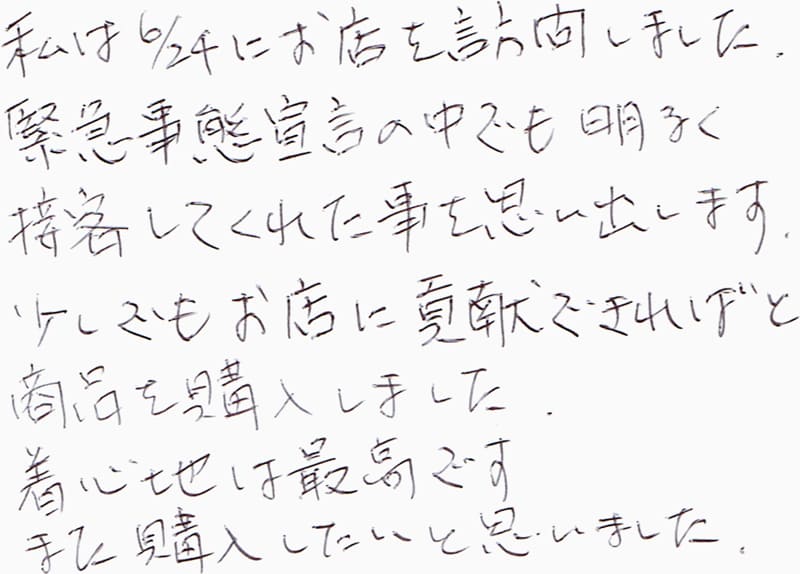 私は6/24にお店を訪問しました.
緊急事態宣言の中でも明るく
接客してくれた事を思い出します.
少しでもお店に貢献できればと
商品を購入しました.
着心地は最高です
また購入したいと思いました.